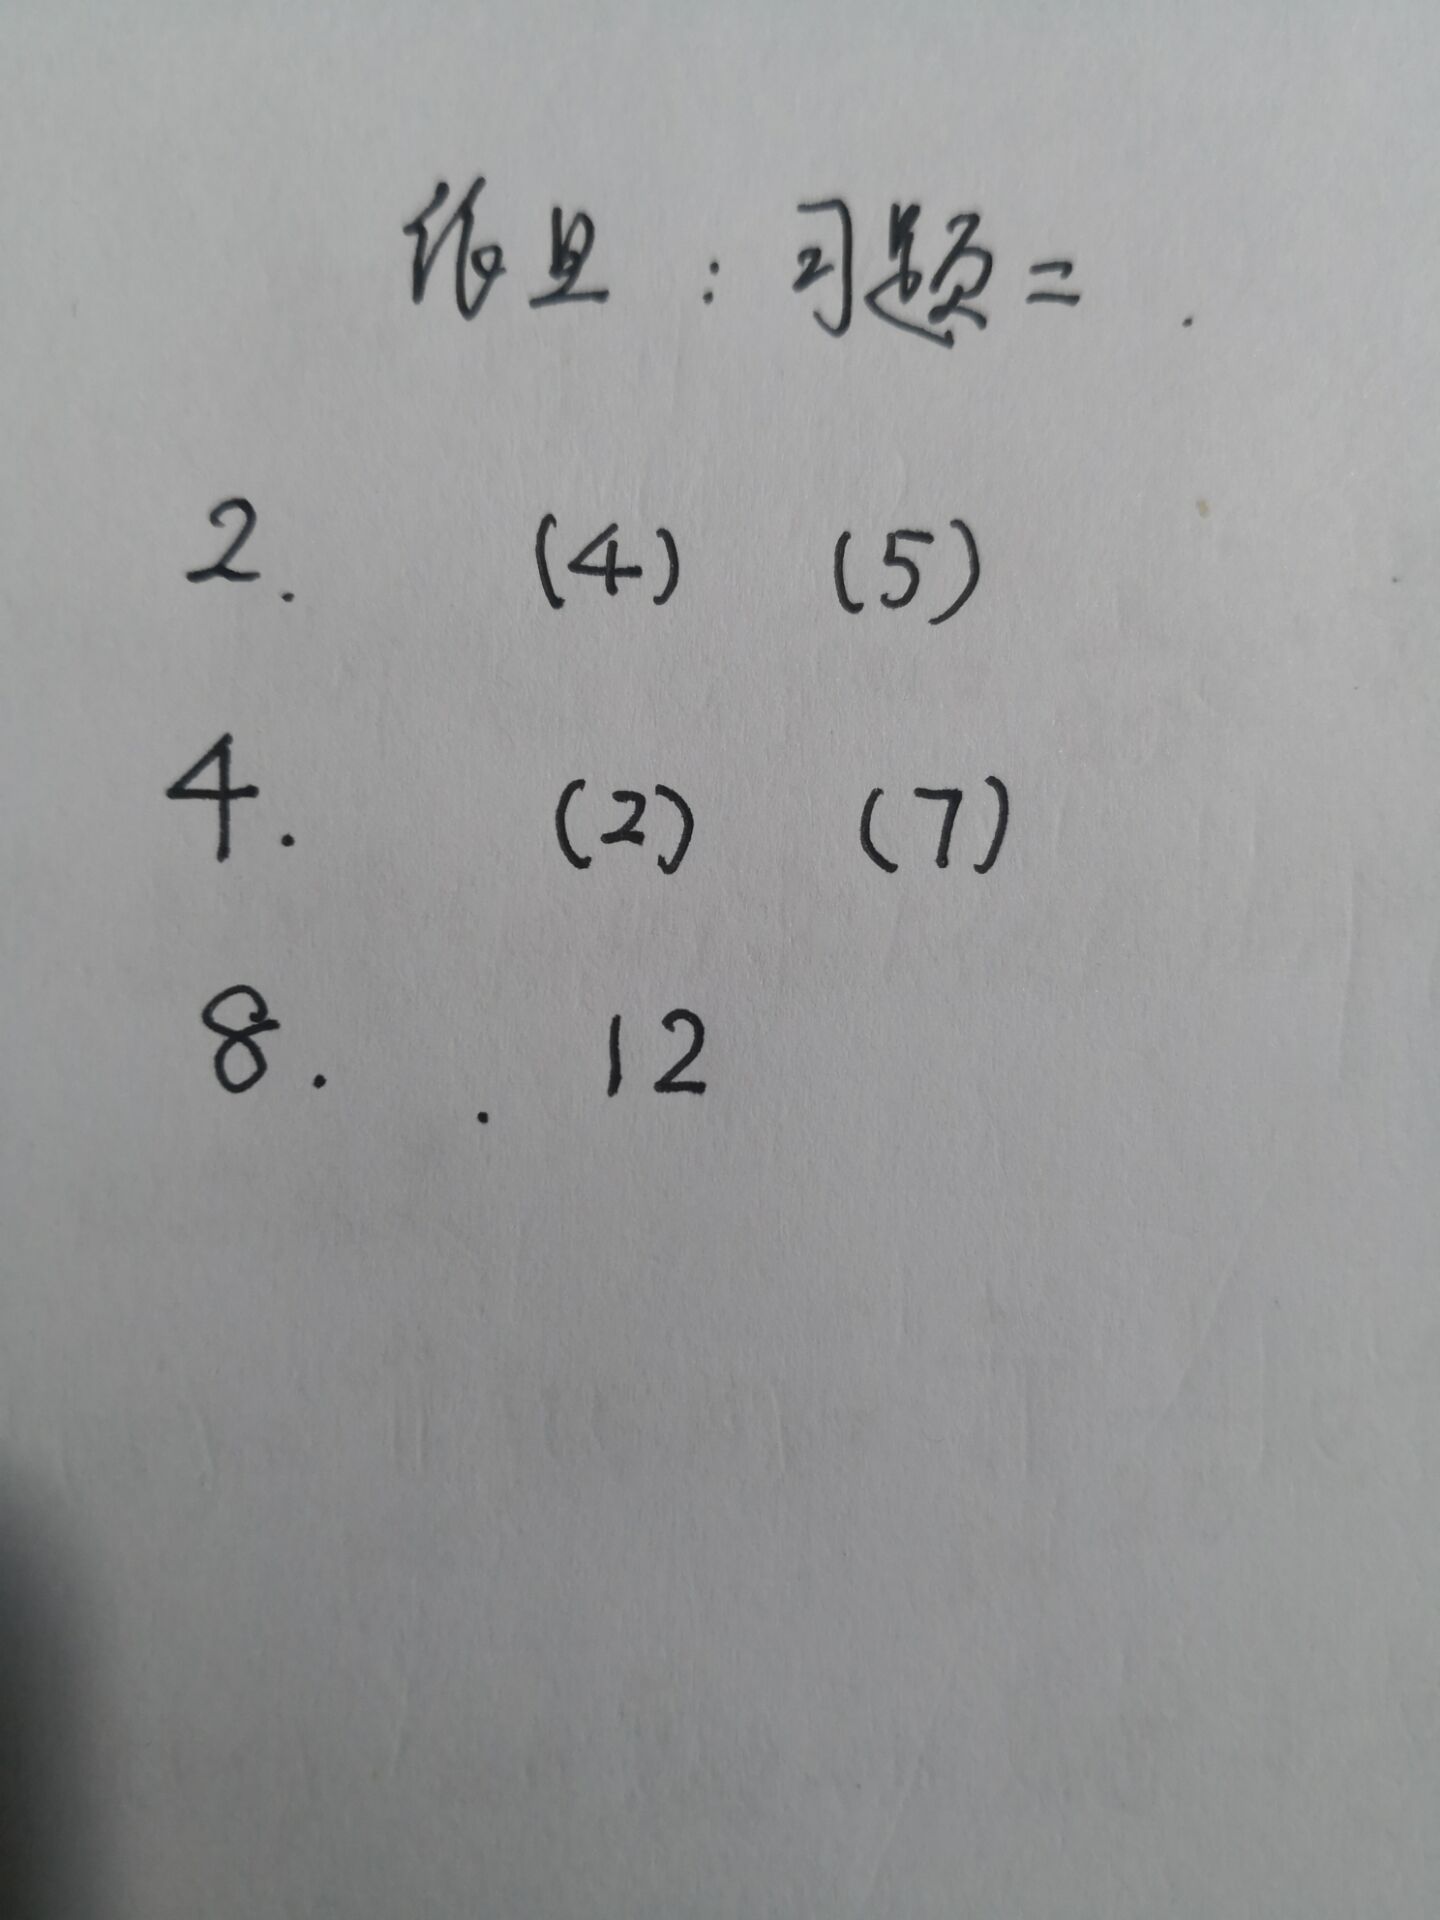 作业：习题二
2. (4) (5)
4. (2) (7)
8. 12